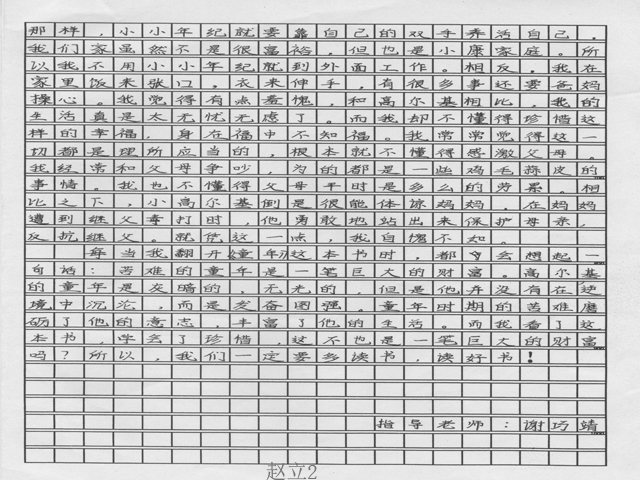 那样，小小年纪就要靠自己的双手养活自己。
我们家虽然不是很富裕，但也是小康家庭。所
以我不用小小年纪就到外面工作。相反，我在
家里饭来张口，衣来伸手，有很多事还要爸妈
操心。我觉得有点羞愧，和高尔基相比，我的
生活真是太无忧无虑了。而我却不懂得珍惜这
样的幸福，身在福中不知福。我常常觉得这一
切都是理所应当的，根本就不懂得感激父母。
我经常和父母争吵，为的都是一些鸡毛蒜皮的
事情。我也不懂得父母平时是多么的劳累。相
比之下，小高尔基倒是很能体谅妈妈，在妈妈
遭到继父毒打时，他勇敢地站出来保护母亲，
反抗继父。就凭这一点，我自愧不如。
每当我翻开《童年》这本书时，都会想起一
句话：苦难的童年是一笔巨大的财富。高尔基
的童年是灰暗的，无光的，但是他并没有在逆
境中沉沦，而是发奋图强。童年时期的苦难磨
砺了他的意志，丰富了他的生活。而我看了这
本书，学会了珍惜，这不也是一笔巨大的财富
吗？所以，我们一定要多读书，读好书！
指导老师：谢巧靖
赵立2